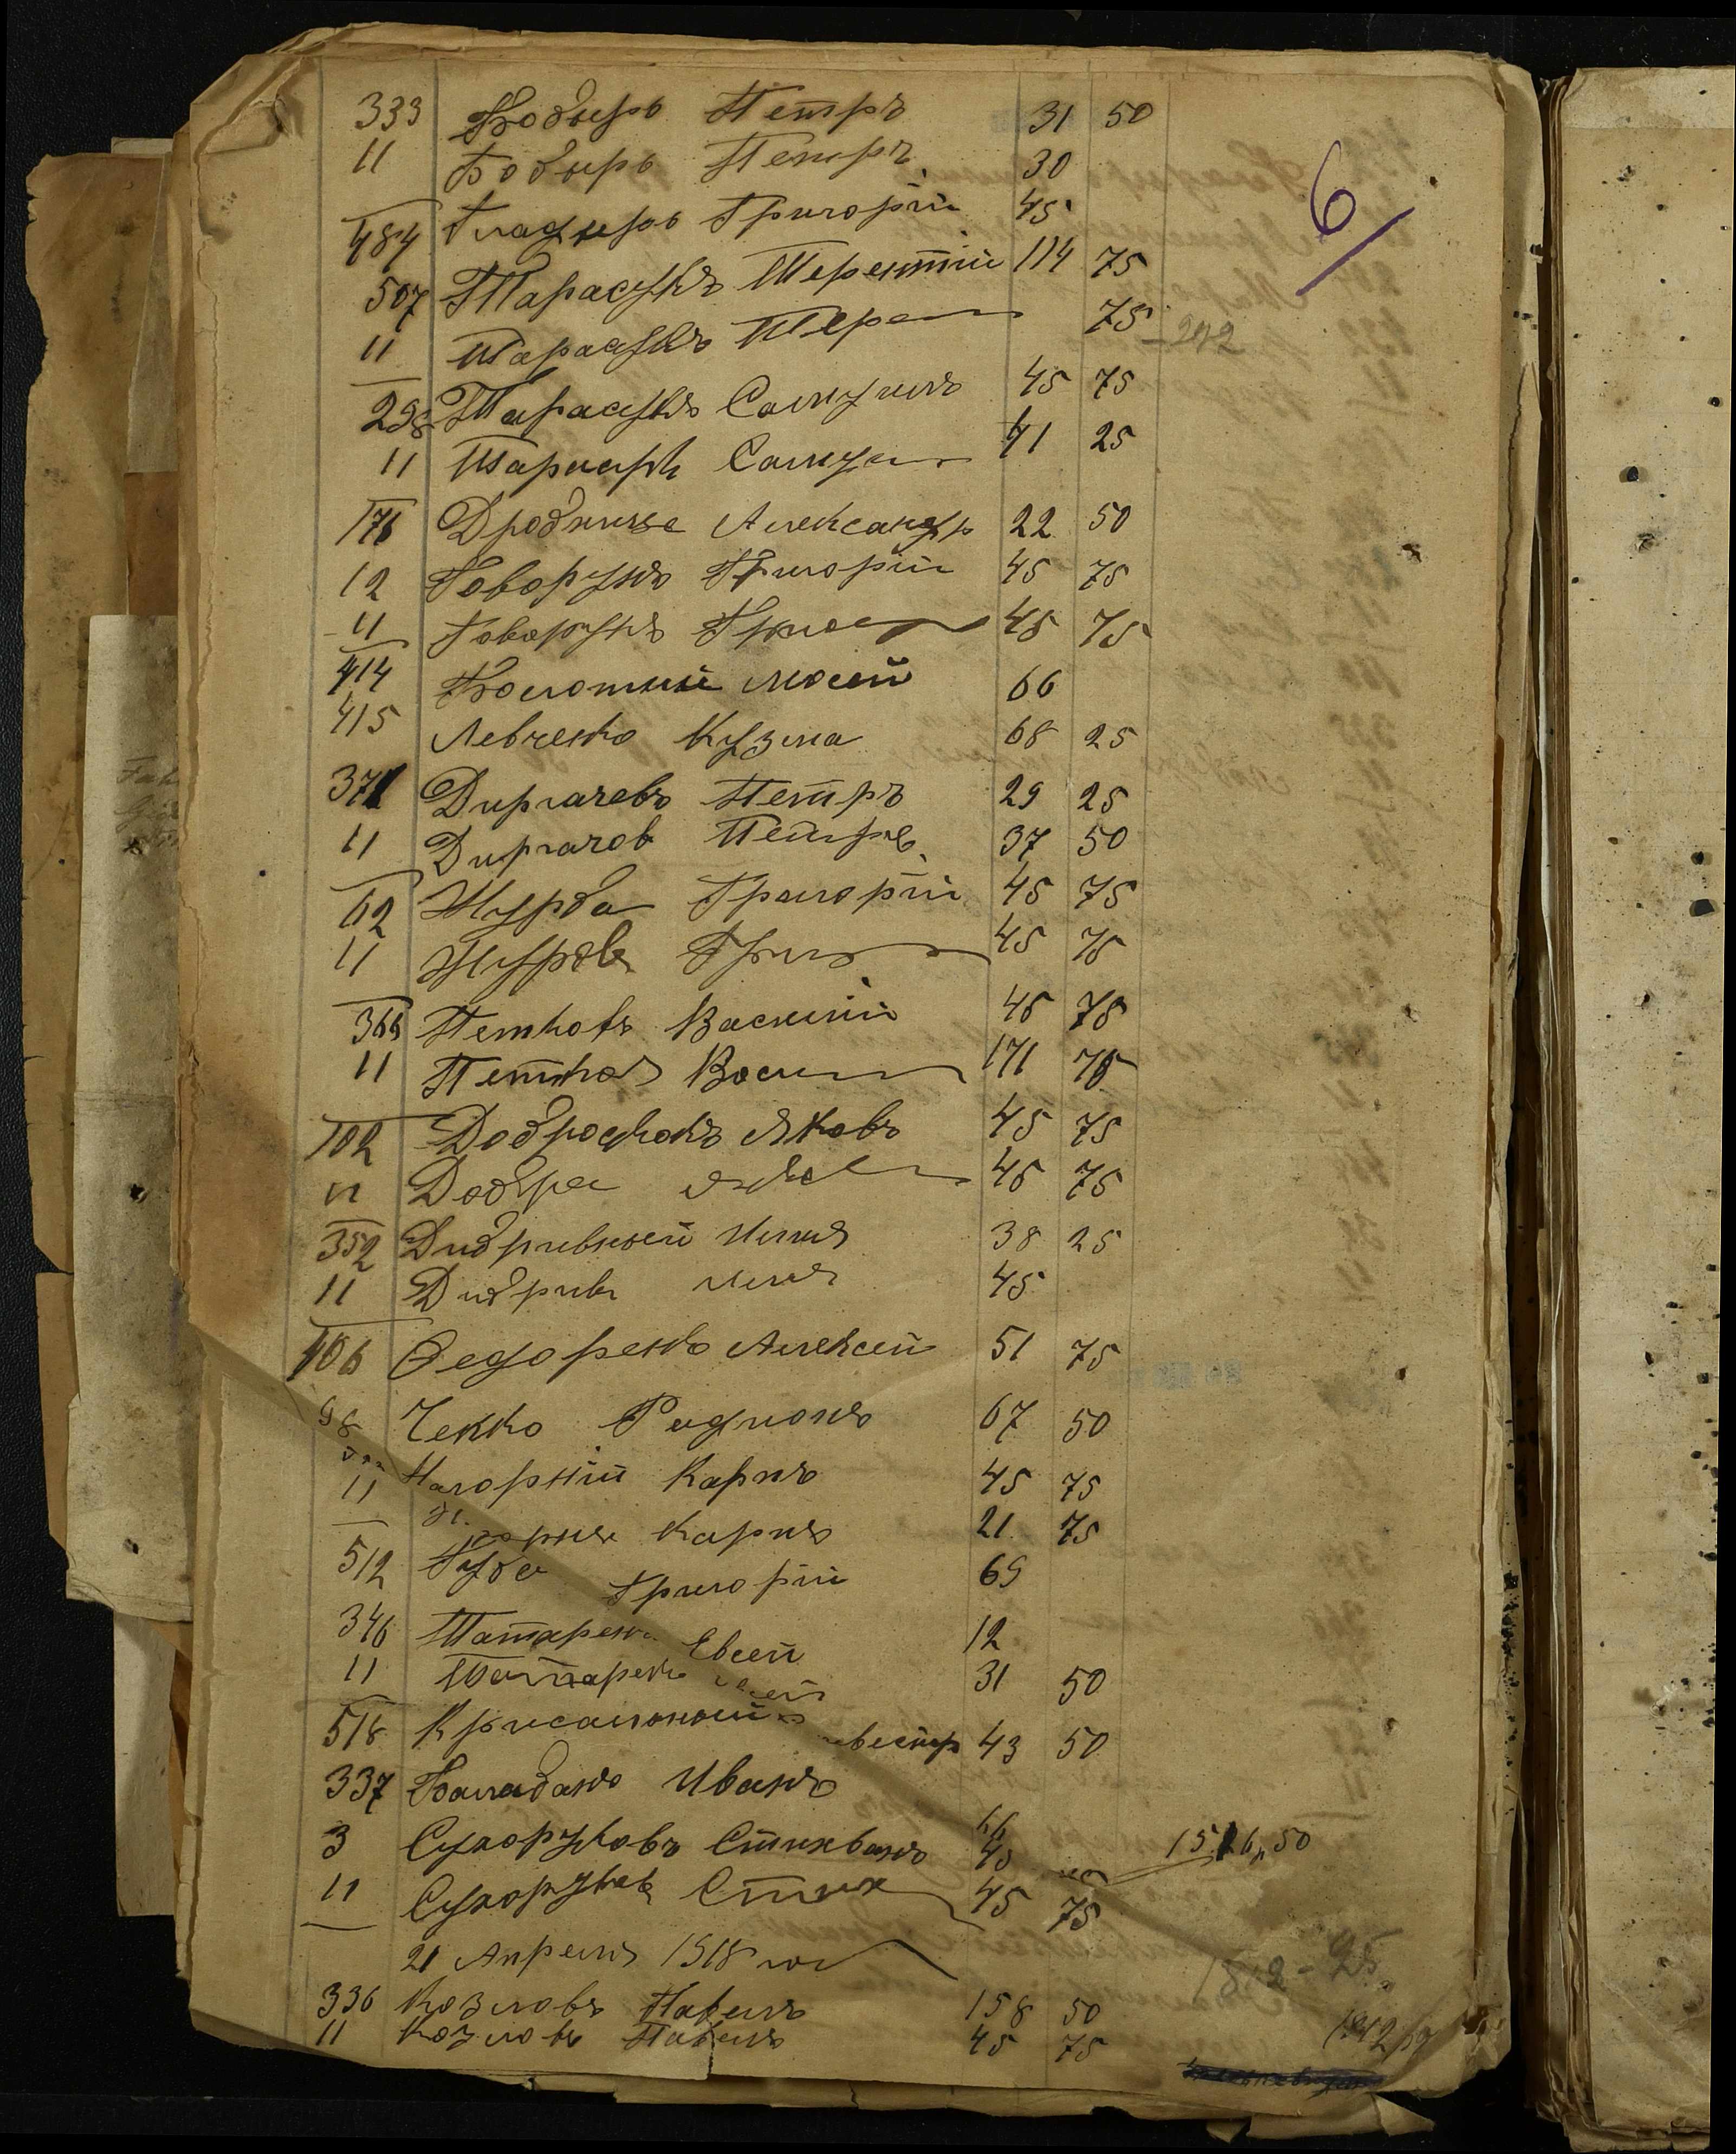 6
333 Бобырь Петръ 31 50
11 Бобырь Петръ 30
484 Гладырь Григорій 45
507 Тарасукъ Терентій 114 75
11 Тарасукъ Тере 75 -292
298 Тарасукъ Самуилъ 45 75
11 Тарасукъ Самуи 41 25
176 Александр 22 50
12 Говорунъ Григорій 45 75
11 Говорунъ Григо 45 75
414 Болотный Мосей 66
415 Левченко Кузма 68 25
371 Диргачевъ Петръ 29 25
11 Диргачов Петръ 37 50
62 Журба Григорій 45 75
11 Журба Григ 45 75
365 Петковъ Василій 45 75
11 Петков Васил 171 75
102 Доброскокъ Яковъ 45 75
11 Добро Яков 45 75
352 Дибривный Илия 38 25
11 Дибрив Илия 45
406 Федоренко Алексей 51 75
98 Ченко Радионъ 67 50
11 Нагорный Карпъ 45 75
Карпъ 21 75
512 Губа Григорій 69
346 Татарен Евсей 12
11 Татаренко 31 50
518 43 50
337 Балабанъ Иванъ 66
3 Сухоруковъ Стихванъ 45 1516,,50
11 Сухоруков Стих 45 75
21 Апреля 1918 год 1812-25
336 Козловъ Павелъ 158 50
11 Козловъ Павелъ 45 75